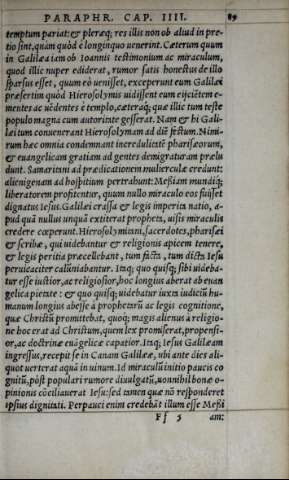 PARAPHR. CAP. IIII. 89
temptum pariat: & pleræq; res illis non ob aliud in pre-
tio sint, quàm quòd è longinquo uenerint. Cæterum quum
in Galilæa iam ob Ioannis testimonium ac miraculum,
quod illic nuper ediderat, rumor satis honestus de illo
sparsus esset, quum eò uenisset, exceperunt eum Galilæi
præsertim quòd Hierosolymis uidissent eum eijciētem e-
mentes ac uēdentes è templo, cæteraq́; quæ illic tum teste
populo magna cum autorinte gesserat. Nam & hi Gali-
læi tum conuenerant Hierosolymam ad diē festum. Nimi-
rum hæc omnia condemnant incredulitatē pharisæorum,
& euangelicam gratiam ad gentes demigraturam prælu
dunt. Samaritani ad prædicationem mulierculæ credunt:
alienigenam ad hospitium pertrahunt: Messiam mundiq́;
liberatorem profitentur, quum nullo miraculo eos fuisset
dignatus Iesus. Galilæi crassa & legis imperita natio, a-
pud quā nullus unquā extiterat propheta, uisis miraculis
credere cœperunt. Hierosolymitani, sacerdotes, pharisæi
& scribæ, qui uidebantur & religionis apicem tenere,
& legis peritia præcellebant, tum facta, tum dicta Iesu
peruicaciter calūniabantur. Itaq; quo quisq; sibi uideba-
tur esse iustior, ac religiosior, hoc longius aberat ab euan
gelica pietate: & quo quisq; uidebatur iuxta iudiciū hu-
manum longius abesse à prophetarū ac legis cognitione,
quæ Christū promittebat, quoq́; magis alienus à religio-
ne hoc erat ad Christum, quem lex promiserat, propensi-
or, ac doctrinæ euāgelicæ capatior. Itaq; Iesus Galilæam
ingressus, recepit se in Canam Galilææ, ubi ante dies ali-
quot uerterat aquā in uinum. Id miraculū initio paucis co
gnitū, pòst populari rumore diuulgatū, nonnihil bonæ o-
pinionis cōciliauerat Iesu: sed tamen quæ nō responderet
ipsius dignitati. Perpauci enim credebāt illum esse Messi
Ff 5 am: